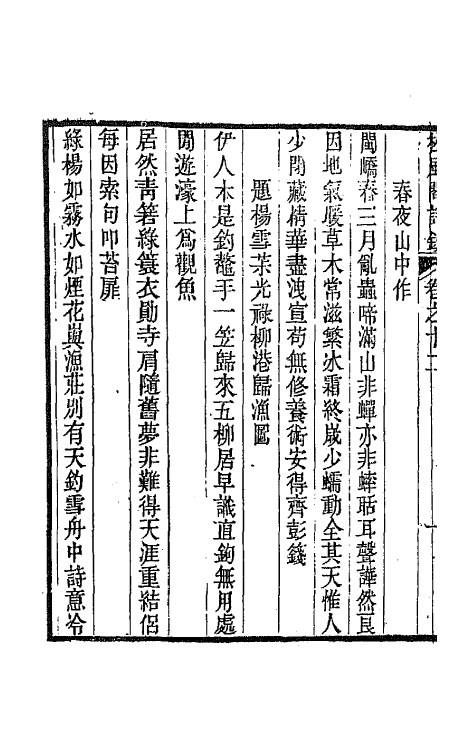 卷之十二
春夜山中作
閩嶠春三月亂蟲啼滿山非蟬亦非蟀聒耳聲譁然艮
因地氣暖草木常滋繁冰霜終歲少蠕動全其天惟人
少閉藏精華盡洩宣苟無修養術安得齊彭籛
題楊雪茮光祿柳港歸漁圖
伊人本是釣鼇手一笠歸來五柳居早識直鉤無用處
閒遊濠上爲觀魚
居然靑箬綠蓑衣勛寺肩隨舊夢非難得天涯重結侶
每因索句叩苔扉
綠楊如霧水如煙花與漁莊別有天釣雪舟中詩意冷